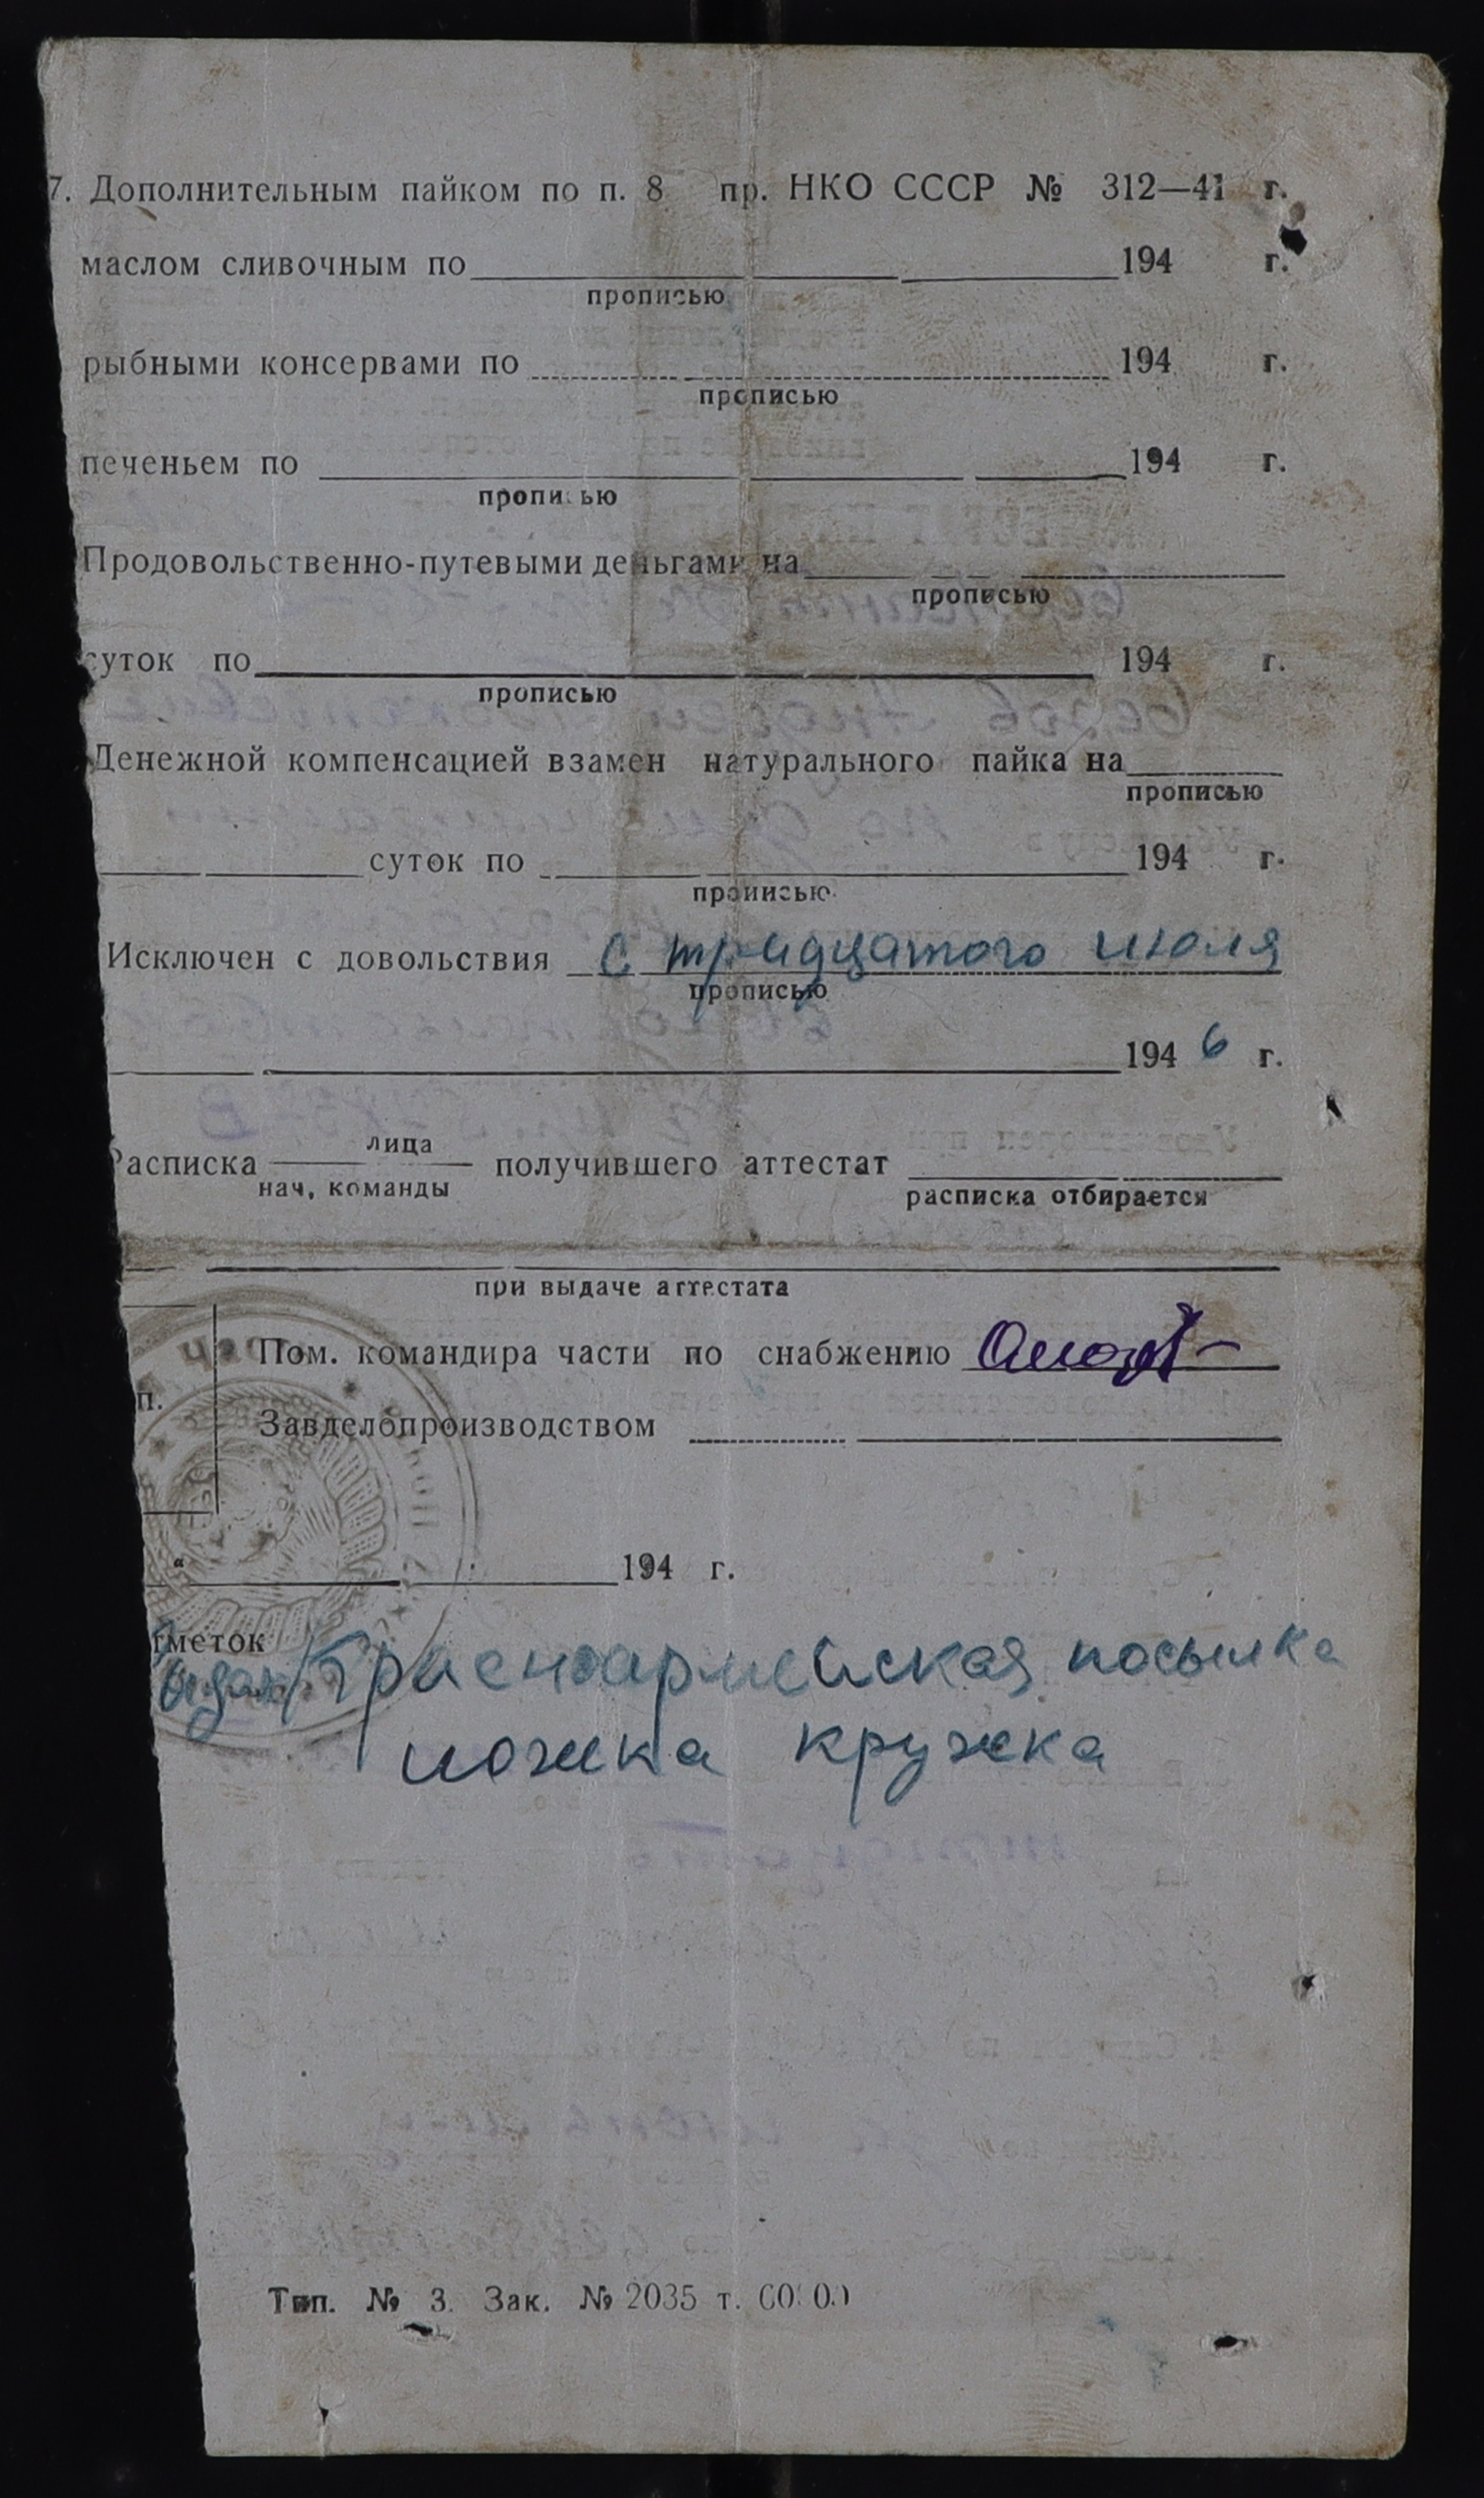 7. Дополнительным пайком по п. 8 пр. НКО СССР № 312—41 г.
маслом сливочным по 194 г.
прописью
рыбными консервами по 194 г.
прописью
печеньем по 194 г.
прописью
Продовольственно-путевыми деньгами на
прописью
суток по 194 г.
прописью
Денежной компенсацией взамен натурального пайка на
прописью
суток по 194 г.
прописью
Исключен с довольствия с тридцатого июля
прописью
194 6 г.
лица
Расписка получившего аттестат
нач. команды расписка отбирается
при выдаче аттестата
Пом. командира части по снабжению
п.
Завделопроизводством
" 194 г.
тметок
Красноармейская посылка
ложка кружка
Тип. № 3. Зак. № 2035 т.